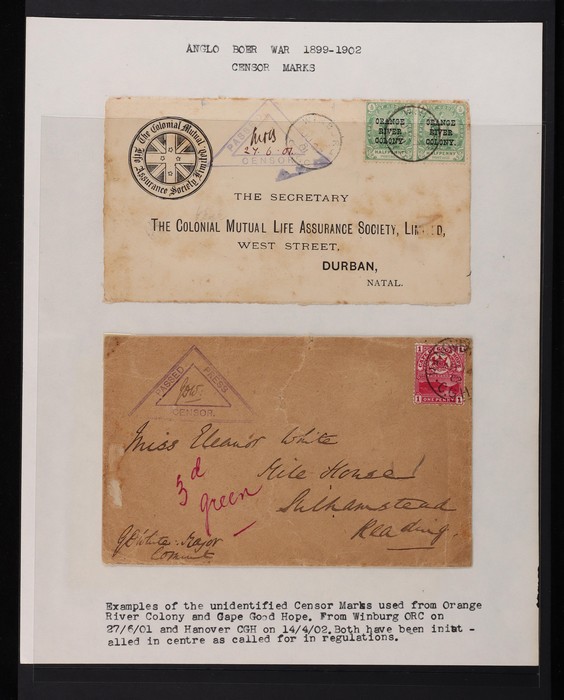 ANGLO BOER WAR 1899-1902
CENSOR MARKS
The Colonial Mutual Life
Assurance Society, Limited
PASSED PRESS
27.6.01
CENSOR
ORANGE
RIVER
COLONY.
HALFPENNY
ORANGE
RIVER
COLONY.
HALFPENNY
THE SECRETARY
THE COLONIAL MUTUAL LIFE ASSURANCE SOCIETY, LIMITED,
WEST STREET,
DURBAN,
NATAL.
PASSED PRESS
CENSOR.
1 1
Miss Eleanor White
Mile House
Sulhamstead
Reading.
3d
green
Major
Examples of the unidentified Censor Marks used from Orange
River Colony and Cape Good Hope. From Winburg ORC on
27/6/01 and Hanover CGH on 14/4/02. Both have been init -
alled in centre as called for in regulations.